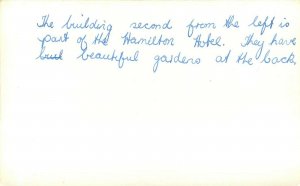 The building second from the left is
part of the Hamilton Hotel. They have
but beautiful gardens at the back.